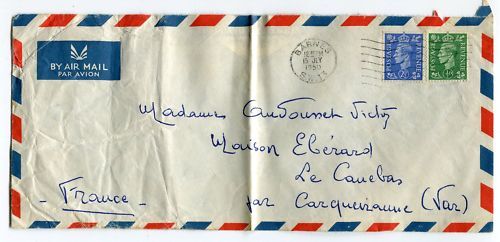 BY AIR MAIL
PAR AVION
BARNES
15 JLY
1950
S.W.13
POSTAGE REVENUE
POSTAGE REVENUE
Madame Victor
Maison Ebérard
Le Canebas
- France - par Carqueiranne (Var)